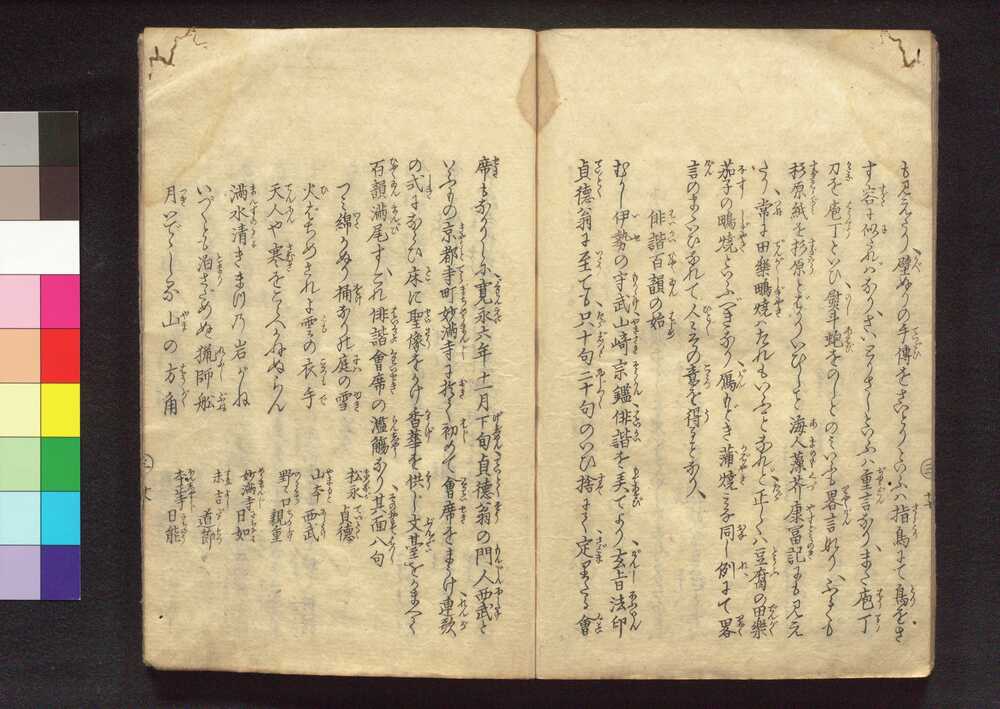 も見えたり、壁ぬりの手傳をさいとりといふハ指鳥にて鳥をさ
す容に似たれハなり、さいとりさしといふハ重言なり、また庖丁
刀を庖丁といひ熨斗鮑をのしとのミいふも畧言なり、いにしも
杉原紙を杉原とばかりいひしこと海人藻芥康富記にも見え
たり、常に田樂鴫燒ハたれもいふことなれど正しくハ豆腐の田樂
茄子の鴫燒といふべきなり、鴈もどき蒲燒ミな同じ例にて畧
言のまゝいひなれて人その意を得ることなり、
俳諧百韻の始
むかし伊勢の守武山崎宗鑑俳諧を美てより玄旨法印
貞德翁に至ても只十句二十句のいひ捨にて定りたる會
席もなかりしに、寛永六年十一月下旬貞德翁の門人西武と
いふもの京都寺町妙滿寺に於て初めて會席をまうけ連歌
の式にならひ床に聖像をかけ香華を供し文臺をかまへて
百韻滿尾す、これ俳諧會席の濫觴なり、其面八句
つミ綿かぬり桶なりの庭の雪 松永貞德
火はちめされよ雲の衣手 山本西武
天人や寒をこらへかねぬらん 野々口親重
滿水清きまつの岩がね 妙滿寺日如
いづくとも泊さだめぬ獵師舩 末吉道節
月いでゝしるし山の方角 本輩寺日能